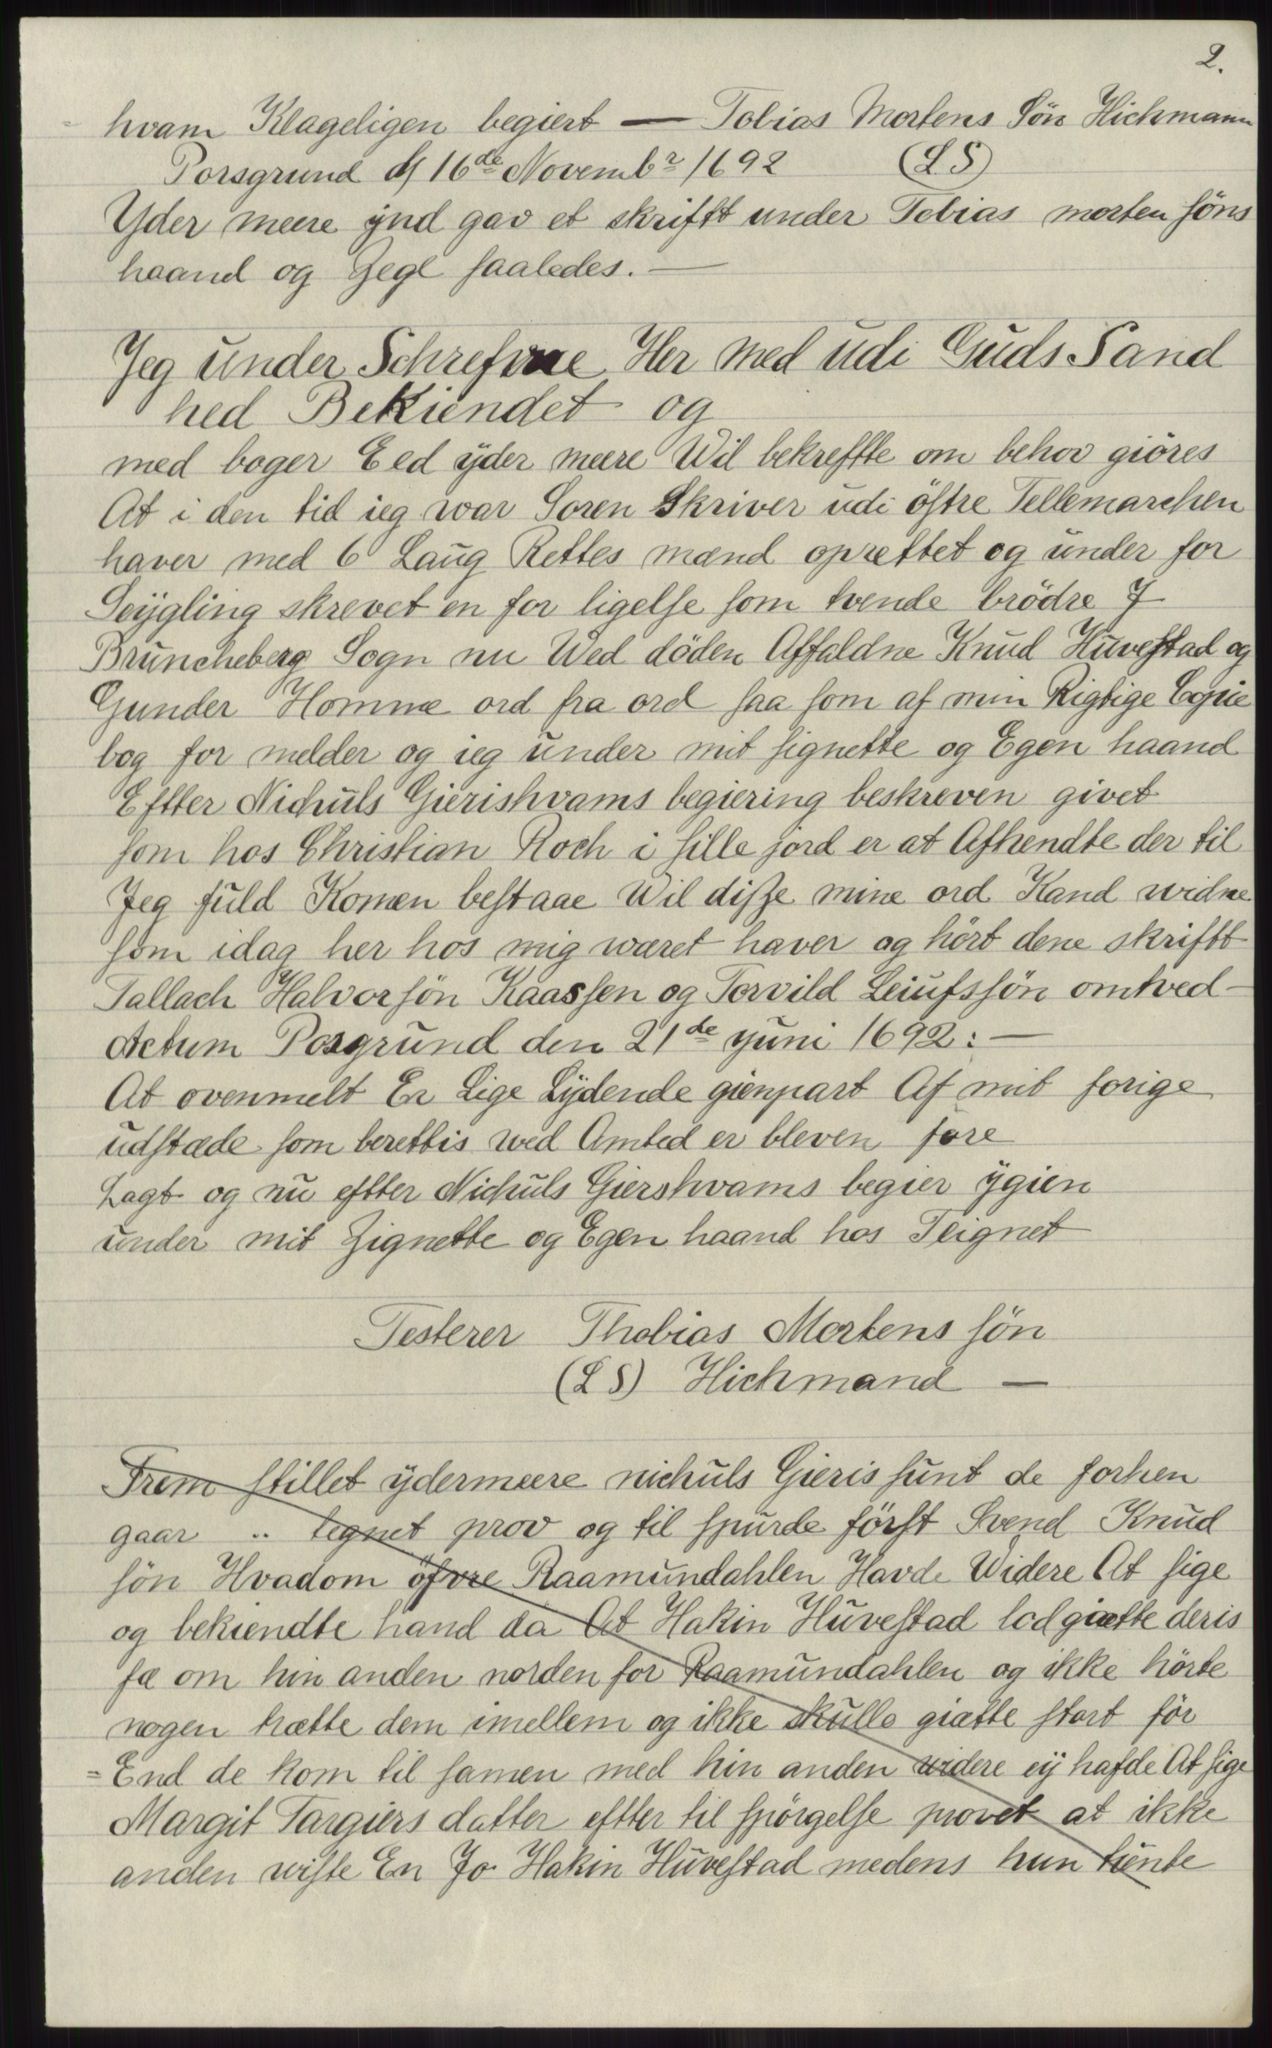 2.
hvam Klageligen begiert — Tobias Mortens Søn Hichmann
Porsgrund d 16de Novembr 1692 (LS)
Yder meere ÿnd gav et skrifft under Tobias morten søns
haand og Zegl saaledes. —
Jeg under Schrefvne Her med udi Guds Sand
hed Bekiendet og
med boger Eed ÿder meere Wil bekreffte om behov giöres
At i den tid ieg war Soren Skriver udi östre Tellemarchen
haver med 6 Laug Rettes mænd oprettet og under for
Seÿgling skrevet en for ligelse som tvende brödre J
Bruncheberg Sogn nu Wed döden Affaldne Knud Huvestad og
Gunder Homme ord fra ord saa som af min Rigtige Copie
bog for melder og ieg under mit signette og Egen haand
Eftter Nichuls Gierishvams begiering beskreven givet
som hos Christian Roch i sille jord er at Afhendte der til
Jeg fuld Komen bestaae Wil disse mine ord Kand widne
som idag her hos mig wæret haver og hört dene skriftt
Tallach Halvorsön Kaassen og Torvild Leiufssön omtved –
Actum Posgrund den 21de yuni 1692: —
At ovenmelt Er Lige Lÿdende gienpart Af mit forige
udstæde som berettis wed Amted er bleven fore
Lagt og nu eftter Nichuls Giershvams begier ÿgien
under mit Zignette og Egen haand hos Teignet
Testerer Thobias Mortens sön
(LS) Hichmand —
Frem stillet ÿdermeere nichuls Gieris sunt de forhen
gaar .. tegnet prov og til spurde först Svend Knud
sön Hvadom öfvre Raamundahlen Havde Widere At sige
og bekiendte hand da At Hakin Huvestad lod giætte deris
fæ om hin anden norden for Raamundahlen og ikke hörte
nogen trætte dem imellem og ikke skulle giætte stort för
= End de kom til samen med hin anden widere eÿ hafde At sige
Margit Targiers datter efter til spörgelse provet at ikke
anden wiste En Jo Hakin Huvestad medens hun tiente